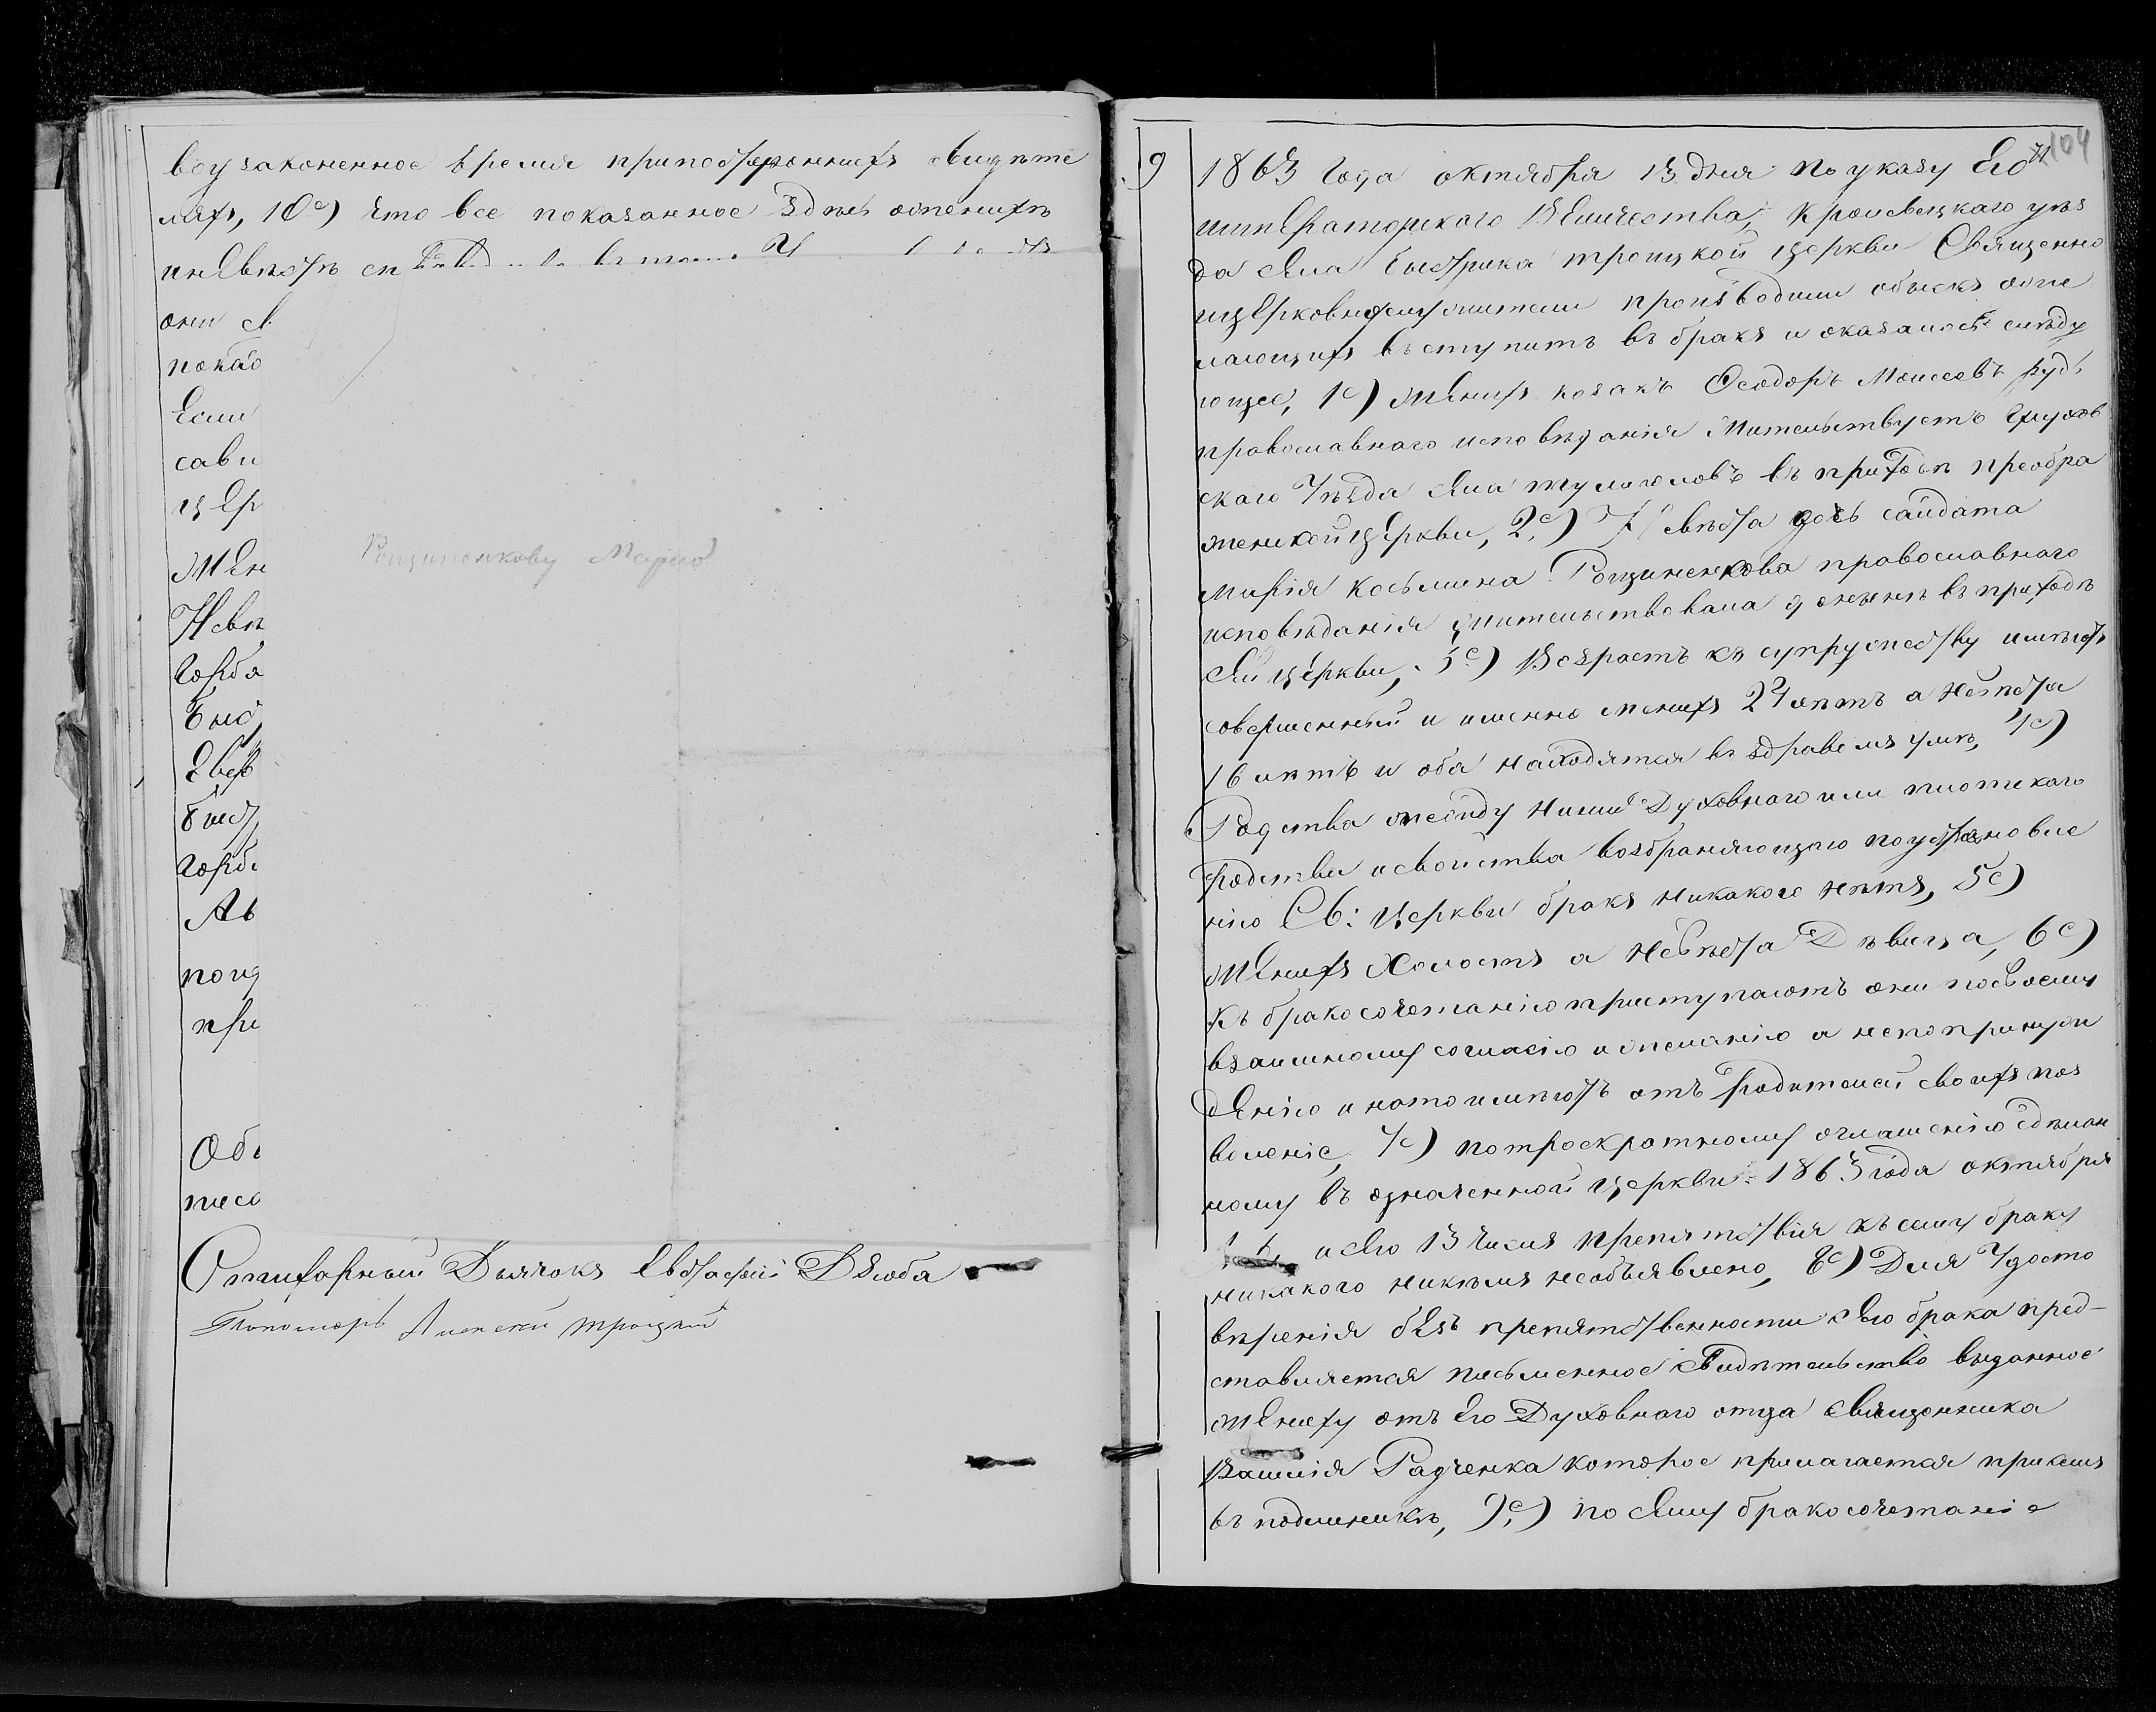 воузаконенное время припосторонныхъ свидѣте
ляхъ, 10е) что все показанное здѣсь оженихѣ
иневѣстѣ сп
они с
показ
Если
сави
цер
Жен
Невѣ
горба
Быс
Двер
Быст
горбо
Ав
поид
при
Рощиненкову Марию
Обы
писа
Стихарный Дьячокъ Евстафий Дзюба
Пономарь Алексей Троцкий
104
9
1863 Года октября 13 дня по указу Его
императорского Величества, Кролевецкого уѣз
да села Быстрика троицкой церкви Священно
ицерковнослужители производили обыскъ оже
лающихъ вступить въ бракъ и оказалось слѣду
ющее, 1е) Женихъ козакъ Феодоръ Моисеевъ Рудь
православного исповѣданія Жительствуетъ Глухов
ского Уѣзда села тулиголовъ въ приходѣ преобра
женской церкви, 2е) Невѣста дочь салдата
Марія Косьмина Рощиненкова православного
исповѣданія жительствовала донынѣ въ приходѣ
сей церкви, 3е) Возрастъ къ супружеству имѣютъ
совершенный и именно женихъ 24 лѣтъ а Невѣста
16 лѣтъ и оба находятся въ здравомъ умѣ, 4е)
Родства между ними Духовного или плотского
родства исвойства возбраняющого поустановле
нію Св: Церкви бракъ никакого нѣтъ, 5е)
Женихъ Холостъ а Невѣста Дѣвица, 6е)
Къ бракосочетанію приступаютъ они посвоему
взаимному согласію ижеланію а непопринуж
денію и нато имѣютъ отъ родителей своихъ поз
воленіе, 7е) потроекратному оглашенію сдѣлан
ному въ означенной церкви 1863 года октября
6, и сего 13 числъ препятствія къ сему браку
никакого никѣмъ необъявлено, 8е) Для Удосто
вѣренія безъ препятственности сего брака пред-
ставляется письменное Свидѣтельство выданное
жениху отъ его Духовного отца священника
Василія Радченка которое прилагается присемъ
въ подлиникѣ, 9е) по сему бракосочетаніе